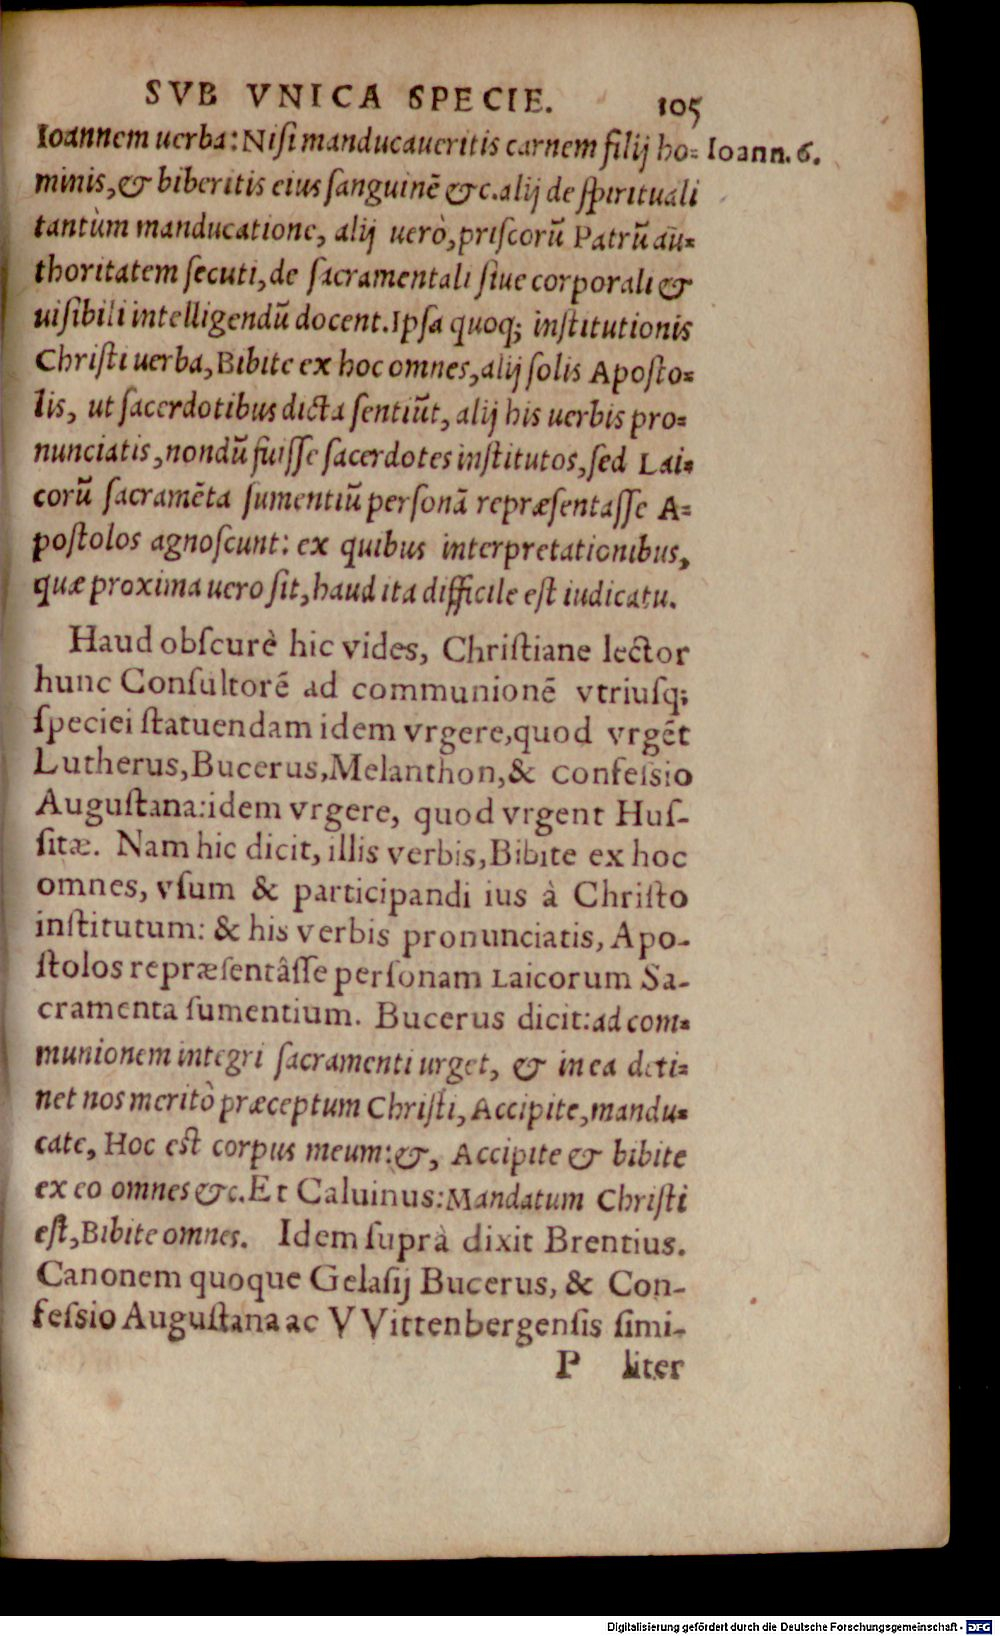 SVB VNICA SPECIE. 105
Ioannem uerba: Niſi manducaueritis carnem filij ho= Ioann. 6.
minis, & biberitis eius ſanguinē &c. alij de ſpirituali
tantùm manducatione, alij uerò, priſcorū Patrū au=
thoritatem ſecuti, de ſacramentali ſiue corporali &
uiſibili intelligendū docent. Ipſa quoq; inſtitutionis
Chriſti uerba, Bibite ex hoc omnes, alij ſolis Apoſto=
lis, ut ſacerdotibus dicta ſentiūt, alij his uerbis pro=
nunciatis, nondū fuiſſe ſacerdotes inſtitutos, ſed Lai=
corū ſacramēta ſumentiū perſonā repræſentaſſe A=
poſtolos agnoſcunt: ex quibus interpretationibus,
quæ proxima uero ſit, haud ita difficile eſt iudicatu.
Haud obſcurè hic vides, Chriſtiane lector
hunc Conſultorē ad communionē vtriuſq;
ſpeciei ſtatuendam idem vrgere, quod vrgēt
Lutherus, Bucerus, Melanthon, & confeſsio
Auguſtana: idem vrgere, quod vrgent Huſ-
ſitæ. Nam hic dicit, illis verbis, Bibite ex hoc
omnes, vſum & participandi ius à Chriſto
inſtitutum: & his verbis pronunciatis, Apo-
ſtolos repræſentâſſe perſonam Laicorum Sa-
cramenta ſumentium. Bucerus dicit: ad com=
munionem integri ſacramenti urget, & in ea deti=
net nos meritò præceptum Chriſti, Accipite, mandu=
cate, Hoc eſt corpus meum: &, Accipite & bibite
ex eo omnes &c. Et Caluinus: Mandatum Chriſti
eſt, Bibite omnes. Idem ſuprà dixit Brentius.
Canonem quoque Gelaſij Bucerus, & Con-
feſsio Auguſtana ac VVittenbergenſis ſimi-
P liter
Digitalisierung gefördert durch die Deutsche Forschungsgemeinschaft - DFG